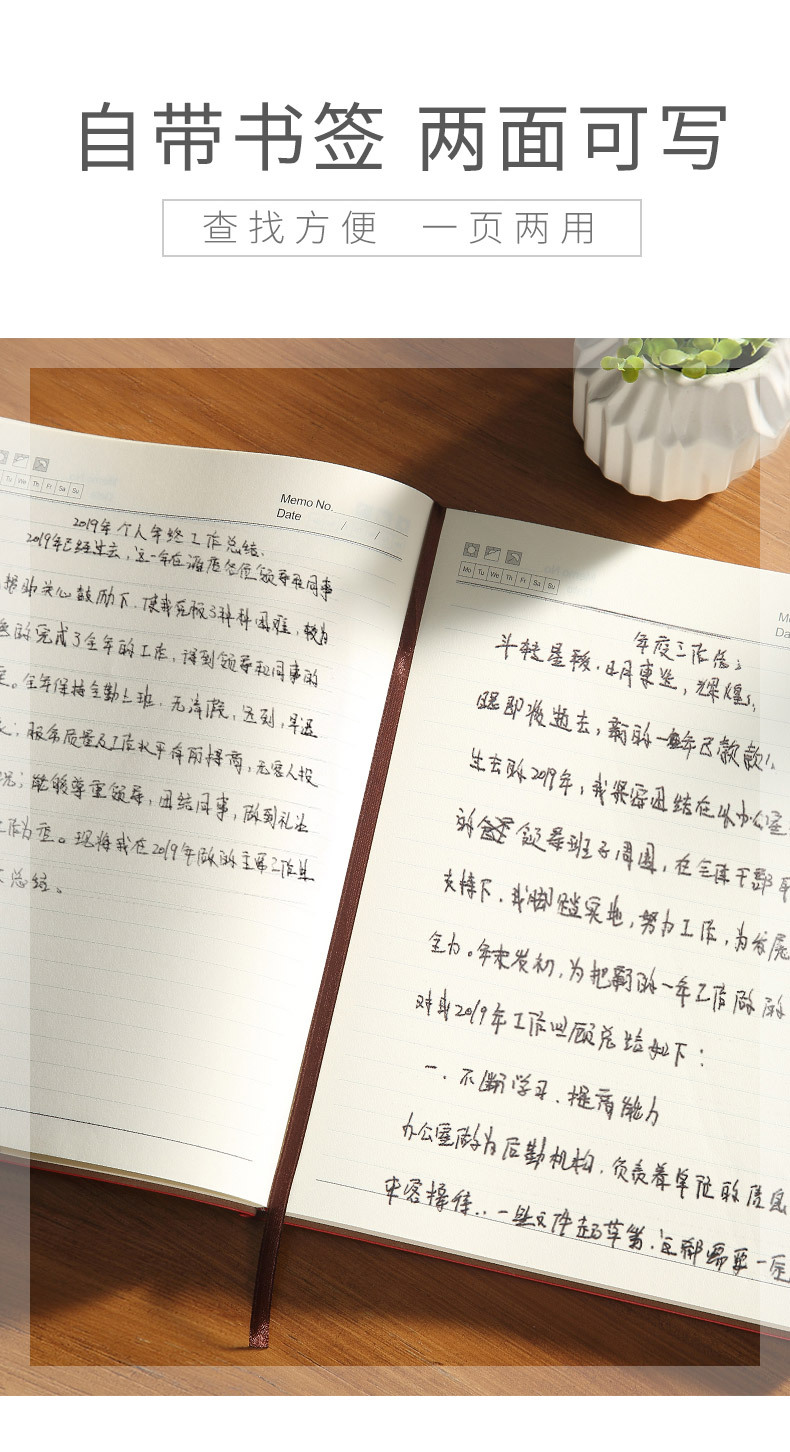 自带书签 两面可写
查找方便 一页两用
Tu We Th Fr Sa Su
Memo No.
Date / /
2019年个人年终工作总结、
2019年已经过去,这一年在
帮助关心鼓励下,使我克服了种种困难,较为
的完成了全年的工作,得到领导和同事的
。全年保持全勤上班、无 假,迟到,早退
;服务质量及工作水平有所提高,无客人投
况;能够尊重领导,团结同事,做到礼让
工作为重。现将我在2019年做的主要工作
总结。
Mo Tu We Th Fr Sa Su
年度工作总
斗转星移、日月 ,辉煌
眼即将逝去,新的一年已款款
生去的2019年,我紧密团结在以办公室
的 领导班子周围,在全体干部
支持下,我脚踏实地,努力工作,为发展
全力。年末岁初,为把新的一年工作做
对我2019年工作回顾总结如下:
一、不断学习、提高能力
办公室做为后勤机构,负责着单位的信息
来客接待、一些文件起草等,这都需要一定